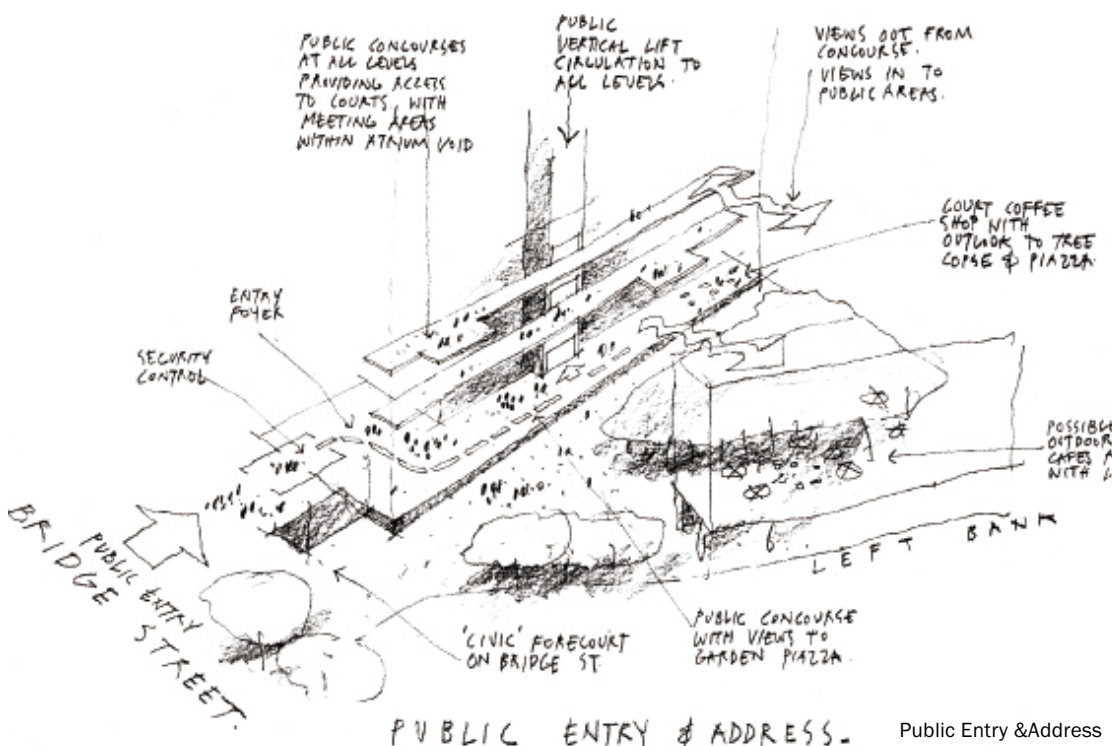 PUBLIC CONCOURSES
AT ALL LEVELS
PROVIDING ACCESS
TO COURTS, WITH
MEETING AREAS
WITHIN ATRIUM VOID
PUBLIC
VERTICAL LIFT
CIRCULATION TO
ALL LEVELS.
VIEWS OUT FROM
CONCOURSE.
VIEWS IN TO
PUBLIC AREAS.
COURT COFFEE
SHOP WITH
OUTLOOK TO TREE
COPSE & PIAZZA
ENTRY
FOYER
SECURITY
CONTROL
POSSIBLE
OUTDOOR
CAFES
WITH
BRIDGE STREET.
PUBLIC ENTRY
LEFT BANK
'CIVIC' FORECOURT
ON BRIDGE ST.
PUBLIC CONCOURSE
WITH VIEWS TO
GARDEN PIAZZA.
PUBLIC ENTRY & ADDRESS.
Public Entry &Address